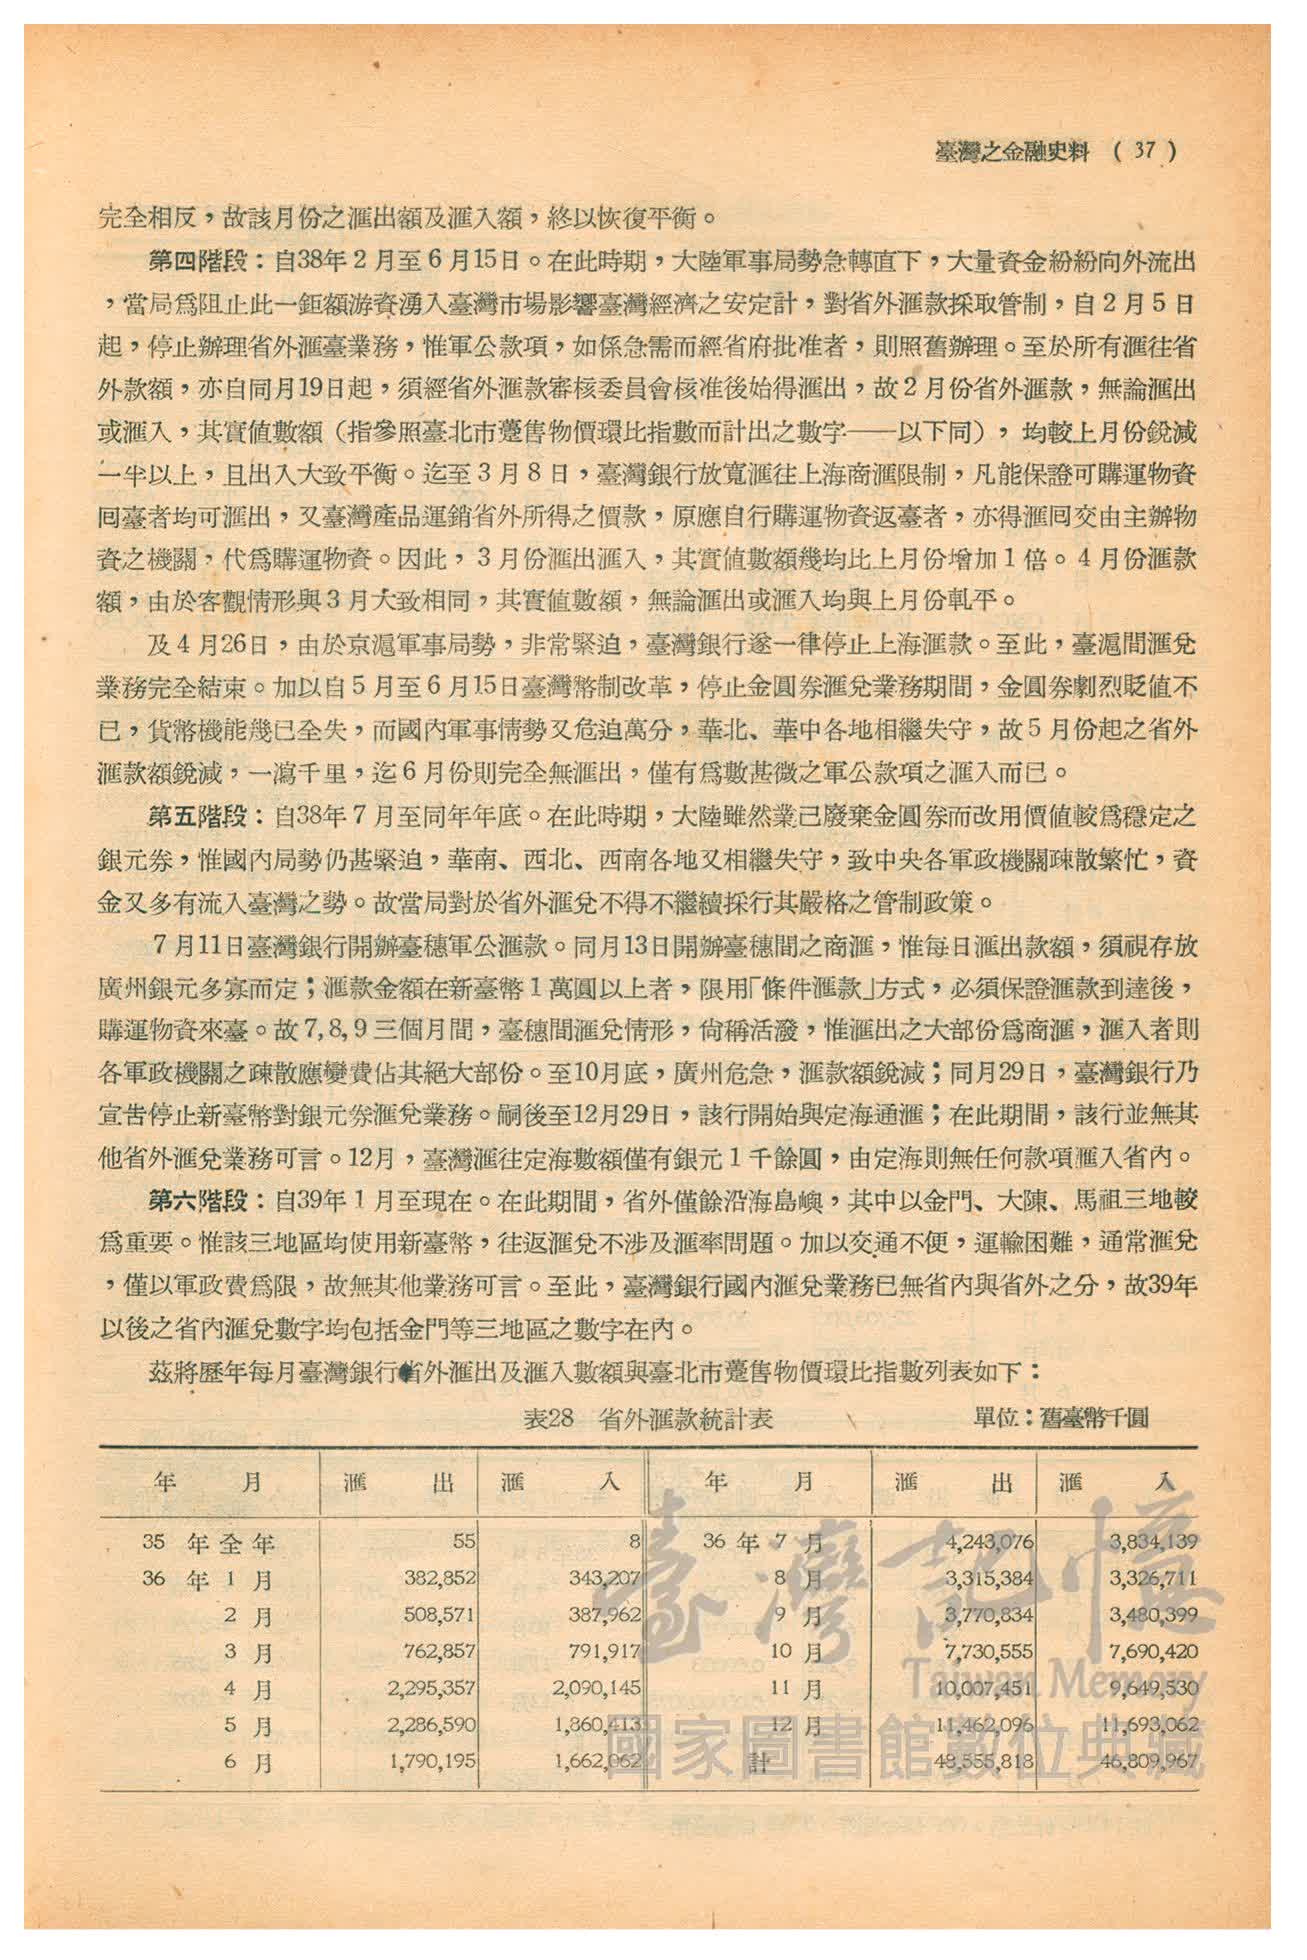 臺灣之金融史料 ( 37 )
完全相反，故該月份之滙出額及滙入額，終以恢復平衡。
第四階段：自38年2月至6月15日。在此時期，大陸軍事局勢急轉直下，大量資金紛紛向外流出
，當局爲阻止此一鉅額游資湧入臺灣市場影響臺灣經濟之安定計，對省外滙款採取管制，自2月5日
起，停止辦理省外滙臺業務，惟軍公款項，如係急需而經省府批准者，則照舊辦理。至於所有滙往省
外款額，亦自同月19日起，須經省外滙款審核委員會核准後始得滙出，故2月份省外滙款，無論滙出
或滙入，其實値數額（指參照臺北市躉售物價環比指數而計出之數字——以下同），均較上月份銳減
一半以上，且出入大致平衡。迄至3月8日，臺灣銀行放寬滙往上海商滙限制，凡能保證可購運物資
囘臺者均可滙出，又臺灣產品運銷省外所得之價款，原應自行購運物資返臺者，亦得滙囘交由主辦物
資之機關，代爲購運物資。因此，3月份滙出滙入，其實値數額幾均比上月份增加1倍。4月份滙款
額，由於客觀情形與3月大致相同，其實値數額，無論滙出或滙入均與上月份軋平。
及4月26日，由於京滬軍事局勢，非常緊迫，臺灣銀行遂一律停止上海滙款。至此，臺滬間滙兌
業務完全結束。加以自5月至6月15日臺灣幣制改革，停止金圓券滙兌業務期間，金圓券劇烈貶値不
已，貨幣機能幾已全失，而國內軍事情勢又危迫萬分，華北、華中各地相繼失守，故5月份起之省外
滙款額銳減，一瀉千里，迄6月份則完全無滙出，僅有爲數甚微之軍公款項之滙入而已。
第五階段：自38年7月至同年年底。在此時期，大陸雖然業已廢棄金圓券而改用價値較爲穩定之
銀元券，惟國內局勢仍甚緊迫，華南、西北、西南各地又相繼失守，致中央各軍政機關疎散繁忙，資
金又多有流入臺灣之勢。故當局對於省外滙兌不得不繼續採行其嚴格之管制政策。
7月11日臺灣銀行開辦臺穗軍公滙款。同月13日開辦臺穗間之商滙，惟每日滙出款額，須視存放
廣州銀元多寡而定；滙款金額在新臺幣1萬圓以上者，限用「條件滙款」方式，必須保證滙款到達後，
購運物資來臺。故7,8,9三個月間，臺穗間滙兌情形，尙稱活潑，惟滙出之大部份爲商滙，滙入者則
各軍政機關之疎散應變費佔其絕大部份。至10月底，廣州危急，滙款額銳減；同月29日，臺灣銀行乃
宣告停止新臺幣對銀元券滙兌業務。嗣後至12月29日，該行開始與定海通滙；在此期間，該行並無其
他省外滙兌業務可言。12月，臺灣滙往定海數額僅有銀元1千餘圓，由定海則無任何款項滙入省內。
第六階段：自39年1月至現在。在此期間，省外僅餘沿海島嶼，其中以金門、大陳、馬祖三地較
爲重要。惟該三地區均使用新臺幣，往返滙兌不涉及滙率問題。加以交通不便，運輸困難，通常滙兌
，僅以軍政費爲限，故無其他業務可言。至此，臺灣銀行國內滙兌業務已無省內與省外之分，故39年
以後之省內滙兌數字均包括金門等三地區之數字在內。
茲將歷年每月臺灣銀行省外滙出及滙入數額與臺北市躉售物價環比指數列表如下：
表28 省外滙款統計表 單位：舊臺幣千圓
年 月 滙 出 滙 入 年 月 滙 出 滙 入
35 年 全 年 55 8 36 年 7 月 4,243,076 3,834,139
36 年 1 月 382,852 343,207 8 月 3,315,384 3,326,711
2 月 508,571 387,962 9 月 3,770,834 3,480,399
3 月 762,857 791,917 10 月 7,730,555 7,690,420
4 月 2,295,357 2,090,145 11 月 10,007,451 9,649,530
5 月 2,286,590 1,860,413 12 月 11,462,096 11,693,062
6 月 1,790,195 1,662,062 計 48,555,818 46,809,967
臺灣記憶
Taiwan Memory
國家圖書館數位典藏